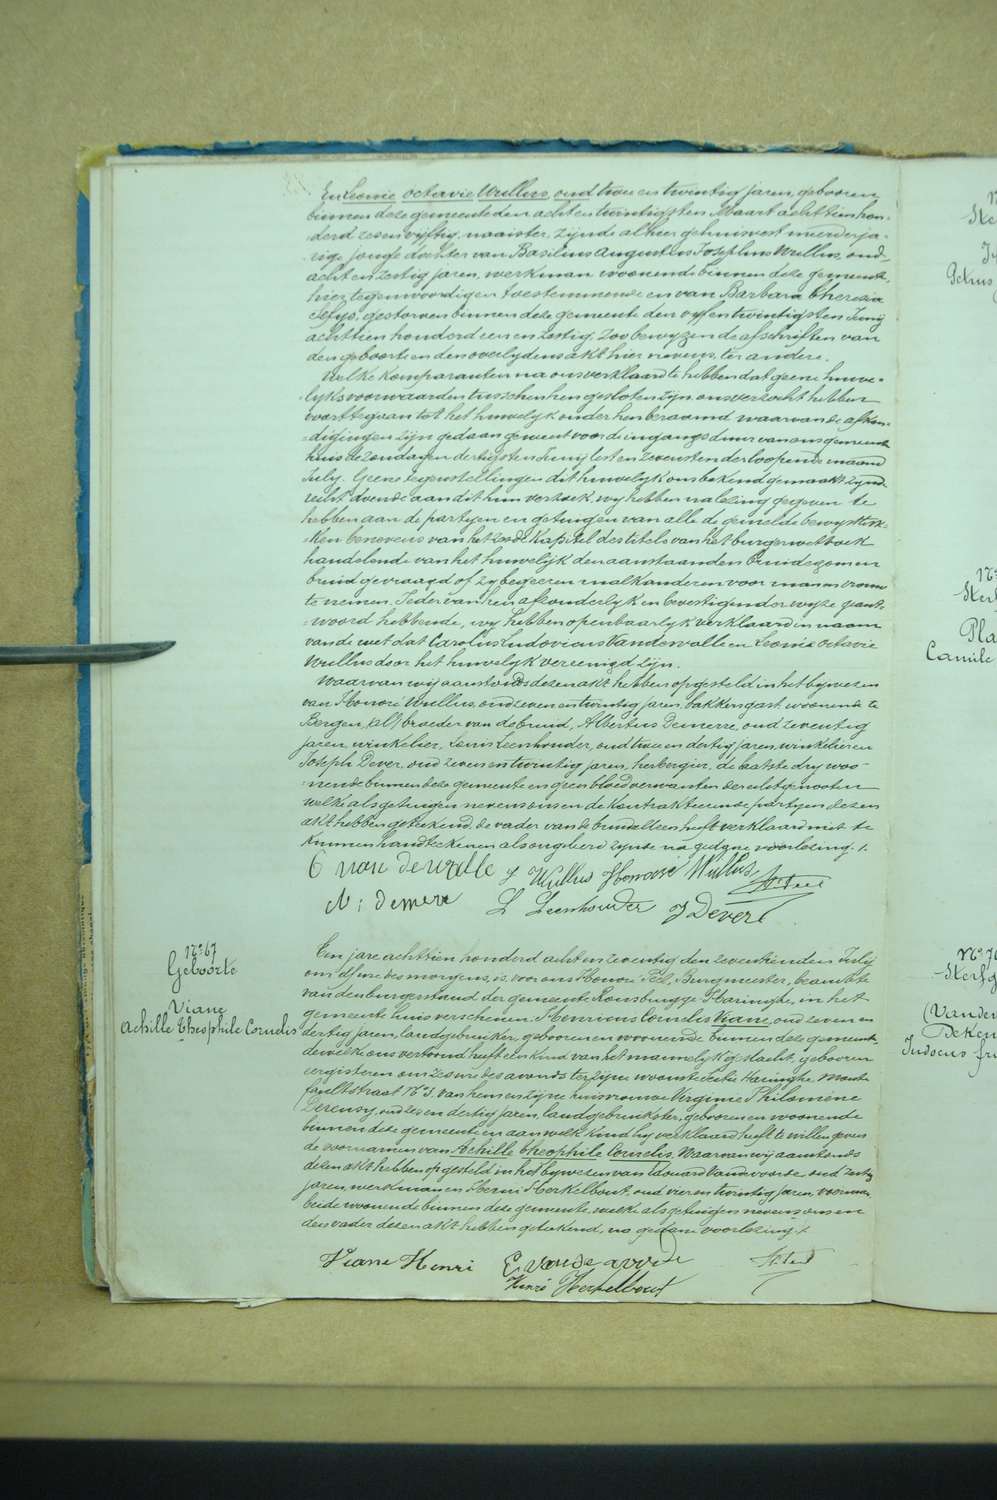 En Leonie octavie Wullus, oud twee en twintig jaren, gebooren
binnen deze gemeente den acht en twintigsten Maart achttien hon-
derd zesenvyftig, naaister, zijnde alhier gehuisvest meerderja-
rige jonge dochter van Basilius Augustus Josephus Wullus, oud
acht en zestig jaren, werkman woonende binnen deze gemeente,
hier tegenwoordig en toestemmende en van Barbara Theresia
gestorven binnen deze gemeente den vyfentwintigsten Juny
achttien honderd een en zestig, zoo bewyzen de afschriften van
den geboorte en den overlydens akt hier nevens, ter andere.
Welke komparanten na ons verklaard te hebben dat geene huwe-
lyksvoorwaarden tusschen hen gesloten zyn, ons verzocht hebben
voorttegaan tot het huwelyk onder hen beraamd waarvan de afkon-
digingen zyn gedaan geweest voor de ingangsdeur van ons gemeente
huis de zondagen dertigsten Juny lest en zevensten der loopende maand
July. Geene tegenstellingen dit huwelyk ons bekend gemaakt zynde
recht doende aan dit hun verzoek, wy hebben na lezing gegeven te
hebben aan de partyen en getuigen van alle de gemelde bewysstuk-
ken benevens van het zesde kapitel des titels van het burgerwetboek
handelende van het huwelijk den aanstaanden bruidegom en
bruid gevraagd of zy begeeren malkanderen voor man en vrouw
te nemen. Ieder van hen afzonderlyk en bevestigender wyze geant-
woord hebbende, wy hebben openbaarlyk verklaard in naam
van de wet dat Carolus Ludovicus Vandewalle en Leonie Octavie
Wullus door het huwelyk vereenigd zyn.
Waarvan wy aanstonds dezen akt hebben opgesteld in het bywezen
van Honoré Wullus, oud zeven en twintig jaren, bakkersgast, woonende te
Bergen, broeder van de bruid, Albertus Demerre, oud zeventig
jaren, winkelier, Louis Leenhouder, oud twee en dertig jaren, winkelier en
Joseph Dever, oud zeven en twintig jaren, herbergier, de laatste dry woo-
nende binnen deze gemeente en geen bloedverwanten der echtgenooten
welke als getuigen nevens ons en de kontrakteerende partyen dezen
akt hebben geteekend, de vader van de bruid alleen heeft verklaard niet te
kunnen handteekenen als ongeleerd zynde na gedane voorlezing./.
C van de walle L Wullus Honoré Wullus
A: demerre L Leenhouder J Dever
N° 67
Geboorte
Viane
Achille Theophile Cornelis
Ten jare achttien honderd acht en zeventig den zeventienden July
om elf ure des morgens, is voor ons Honoré Feel, Burgmeester, beambte
van den burgerstand der gemeente Rousbrugge Haringhe, in het
gemeente huis verschenen Henricus Cornelis Viane, oud zeven en
dertig jaren, landgebruiker, gebooren en woonende binnen deze gemeente,
dewelke ons vertoond heeft een kind van het mannelyk geslacht, gebooren
eergisteren om zes ure des avonds ter zyne woonste sectie Haringhe
straat N° 3, van hem en zijne huisvrouwe Virginie Philomène
oud zes en dertig jaren, landgebruikster, gebooren en woonende
binnen deze gemeente en aan welk kind hy verklaard heeft te willen geven
de voornamen van Achille Theophile Cornelis. Waarvan wij aanstonds
dezen akt hebben opgesteld in het bywezen van Edouard Vandevoorde oud zestig
jaren, werkman en Henri Herkelbout, oud vier en twintig jaren,
beide woonende binnen deze gemeente, welke als getuigen nevens ons en
den vader dezen akt hebben geteekend, na gedane voorlezing./.
Viane Henri E. vande voorde
Henri Herkelbout
Petrus
N°
Camile
N° 70
Judocus